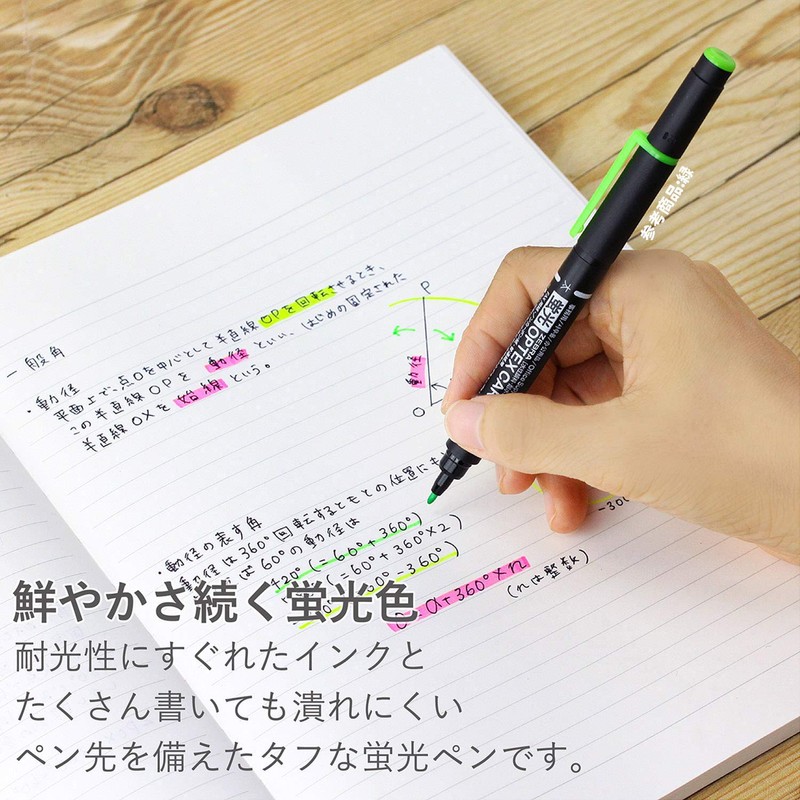 参考商品:緑
太
蛍光 OPTEX CAR
ZEBRA
一般角
・動径
平面上で、点Oを中心として半直線OPを回転させるとき、
この半直線OPを 動径 といい、はじめの固定された
半直線OXを 始線 という。
P
動径
O
動径の表す角
動径は360°回転するともとの位置にも
は60°の動径は
420°(=60°+360°)
(=60°+360°×2)
60°-360°)
-300
α+360°×n
(nは整数)
鮮やかさ続く蛍光色
耐光性にすぐれたインクと
たくさん書いても潰れにくい
ペン先を備えたタフな蛍光ペンです。